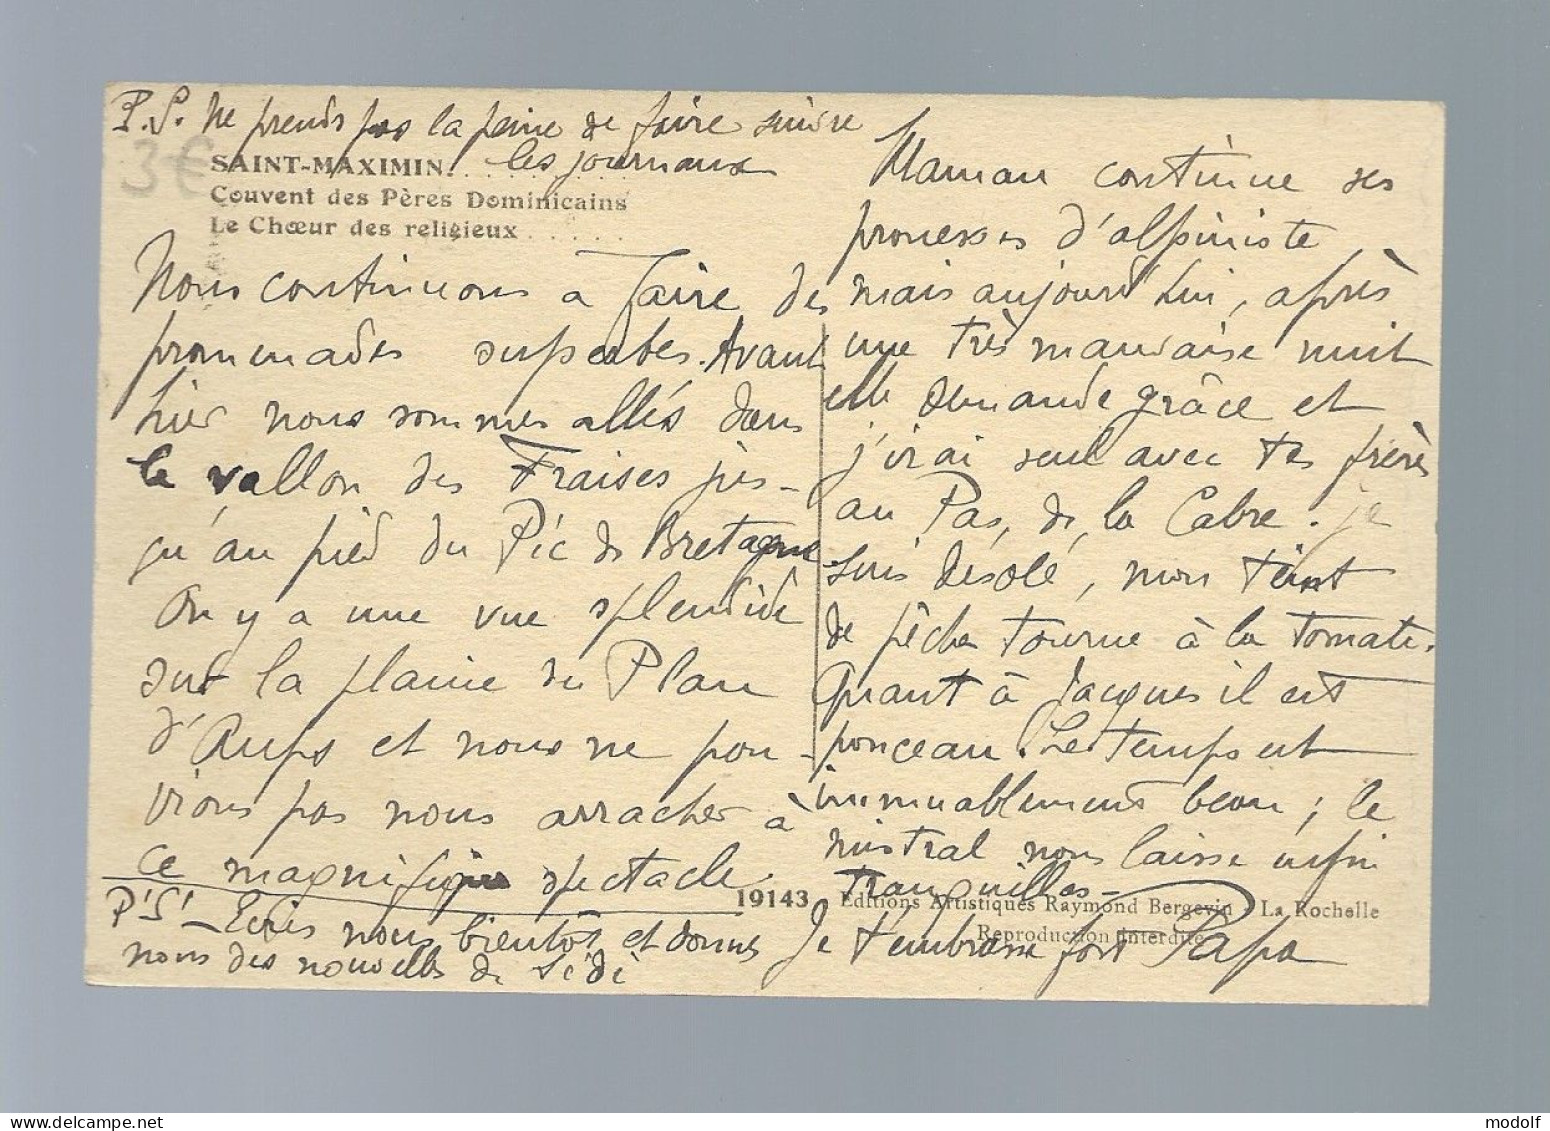 P.S. Ne prends pas la peine de faire suivre
les journaux
3€
SAINT-MAXIMIN
Couvent des Pères Dominicains
Le Chœur des religieux
Nous continuons à faire des
promenades superbes. Avant
hier nous sommes allés dans
le vallon des Fraises jus-
qu'au pied du Pic de Bretagne
On y a une vue splendide
sur la plaine du Plan
d'Aups et nous ne pou-
vions pas nous arracher à
ce magnifique spectacle.
P.S. - Ecris nous bientôt et donnes
nous des nouvelles de Sédi
Maman continue ses
prouesses d'alpiniste
mais aujourd'hui, après
une très mauvaise nuit
elle demande grâce et
j'irai seul avec tes frères
au Pas de la Cabre. je
suis désolé, mon teint
de pêche tourne à la tomate.
Quant à Jacques il est
ponceau. Le temps est
immuablement beau ; le
mistral nous laisse enfin
tranquilles -
19143 Editions Artistiques Raymond Bergevin - La Rochelle
Reproduction Interdite
Je t'embrasse fort Papa
modolf